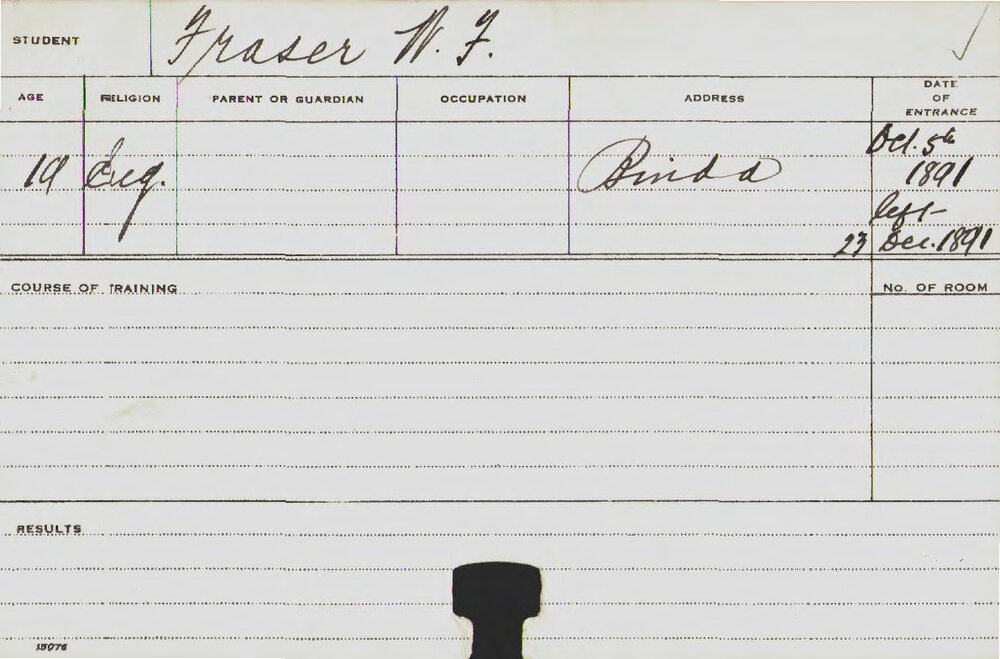 STUDENT Fraser W. F.
AGE RELIGION PARENT OR GUARDIAN OCCUPATION ADDRESS DATE OF ENTRANCE
19 Eng. Binda Oct. 5th
1891
left
23 Dec. 1891
COURSE OF TRAINING No. OF ROOM
RESULTS
15076